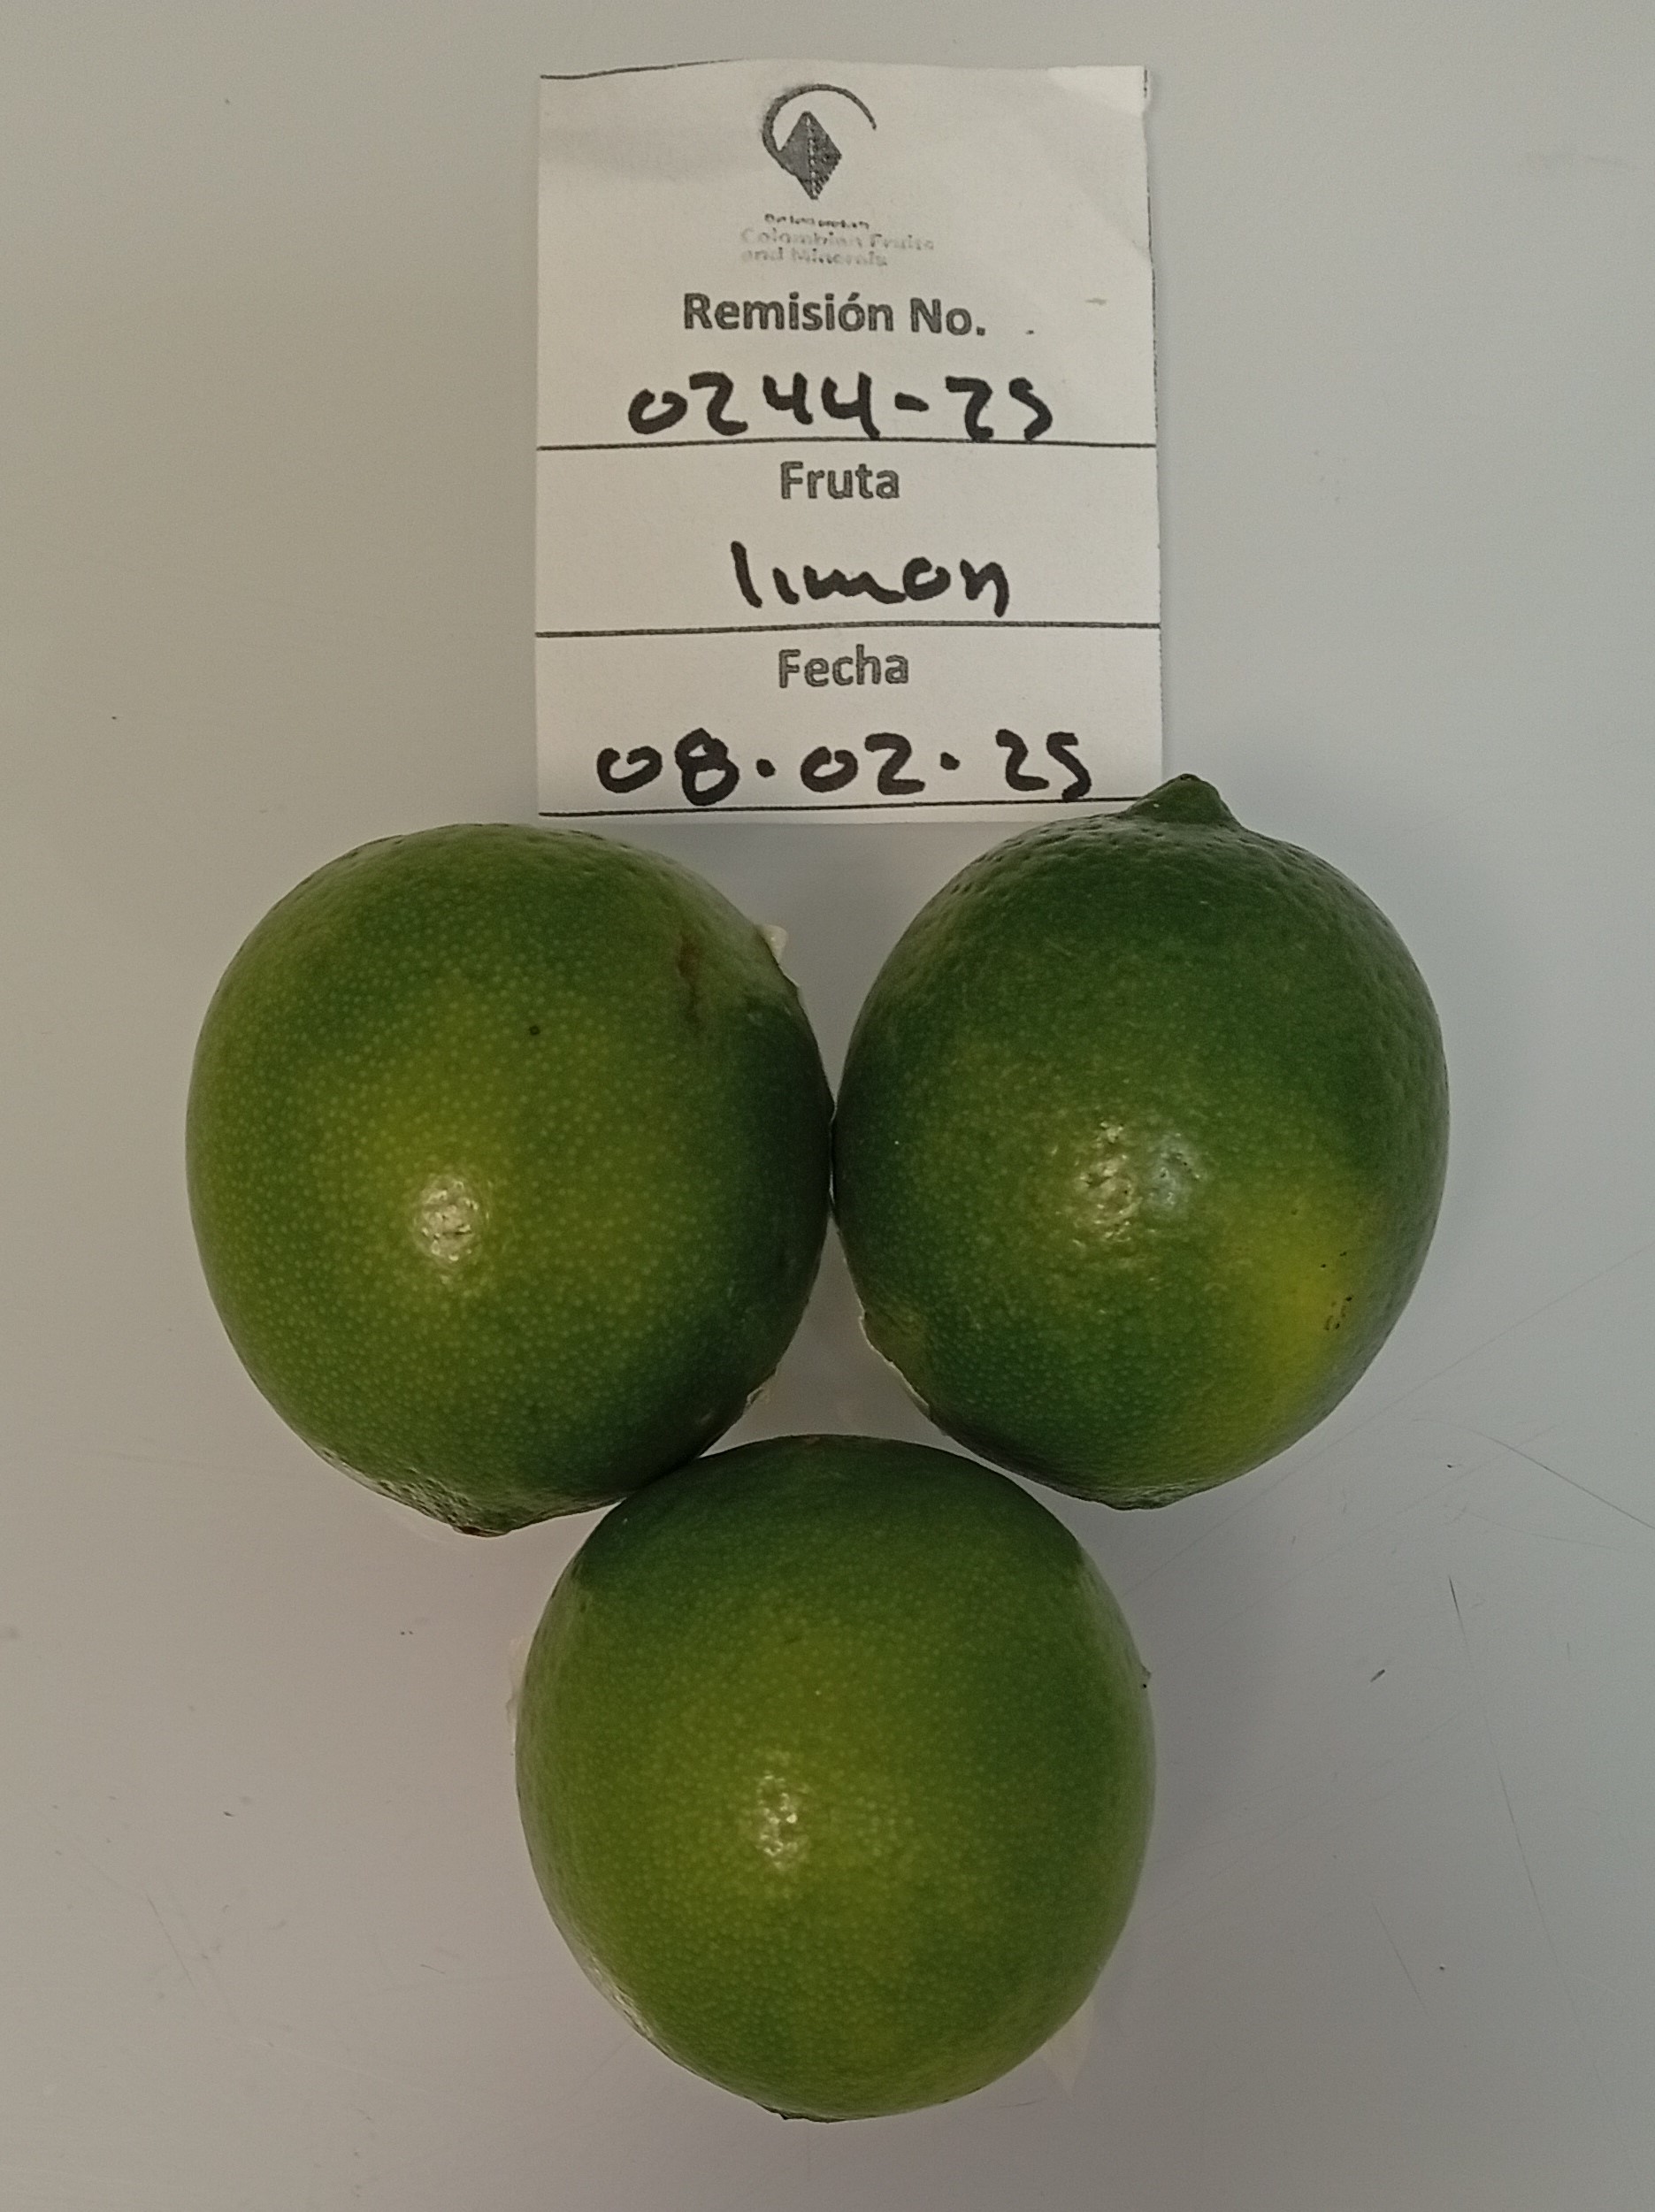 Colombian Fruits
and Minerals
Remisión No.
0244-25
Fruta
limon
Fecha
08.02.25